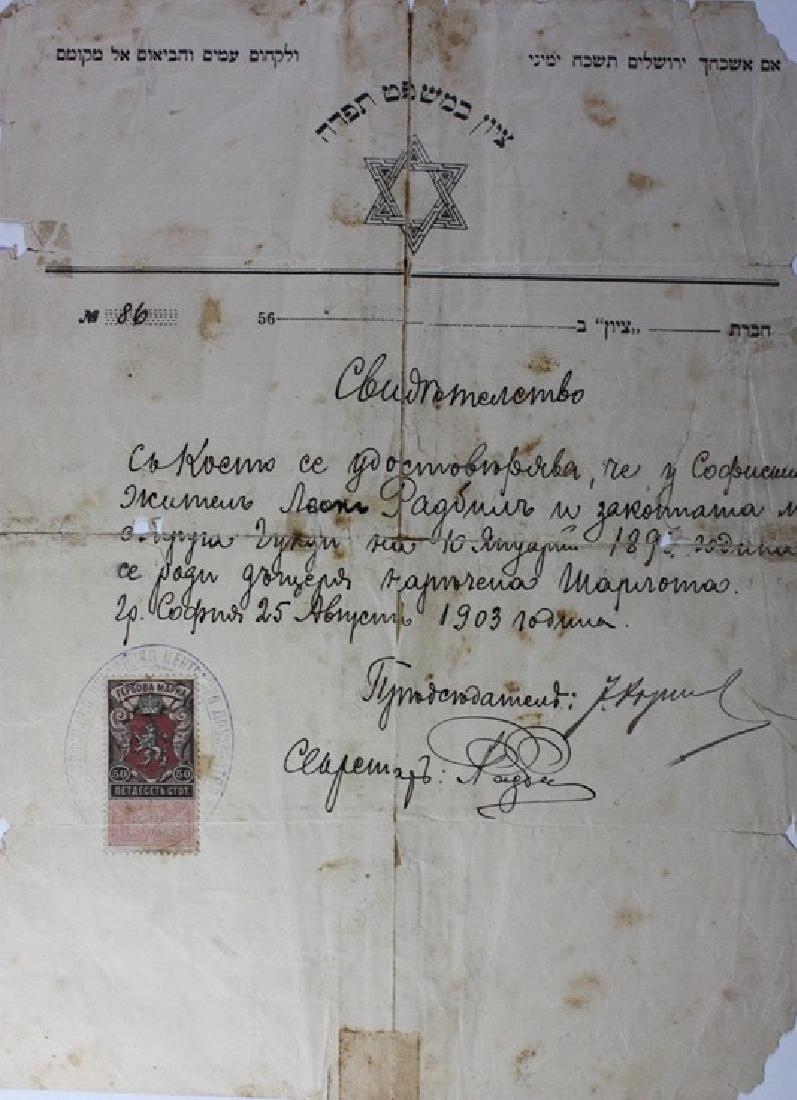 אם אשכחך ירושלים תשכח ימיני
ולקחום עמים והביאום אל מקומם
ציון במשפט תפדה
№ 86
חברת „ציון“ ב 56
Свидѣтелство
съ което се удостовѣрява, че у Софийски
жителъ Леонъ Радбилъ и законната м
на 10 Януарий 189 година
се роди дъщеря наречена Шарлота.
гр. София 25 Августъ 1903 година.
Прѣдседателъ:
Секретаръ:
ГЕРБОВА МАРКА
50 50
ПЕТДЕСЕТЬ СТОТ.